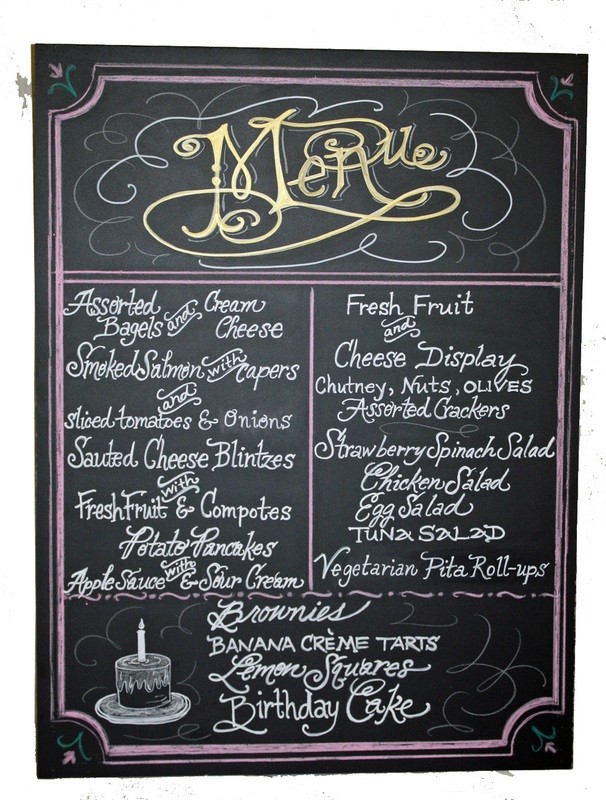 Menu
Assorted and Cream
Bagels Cheese
Smoked Salmon with capers
and
sliced tomatoes & Onions
Sauted Cheese Blintzes
with
Fresh Fruit & Compotes
Potato Pancakes
with
Apple Sauce & Sour Cream
Fresh Fruit
and
Cheese Display
Chutney, Nuts, OLIVES
Assorted Crackers
Strawberry Spinach Salad
Chicken Salad
Egg Salad
TUNA SALAD
Vegetarian Pita Roll-ups
Brownies
BANANA CRÈME TARTS
Lemon Squares
Birthday Cake